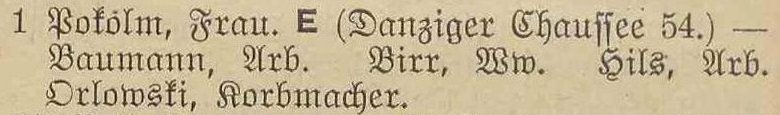 1 Pokölm, Frau. E (Danziger Chaussee 54.) —
Baumann, Arb. Birr, Ww. Hils, Arb.
Orlowski, Korbmacher.